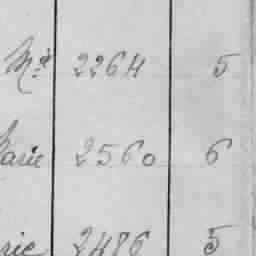 Mie 2264 5
Marie 2560 6
rie 2486 5